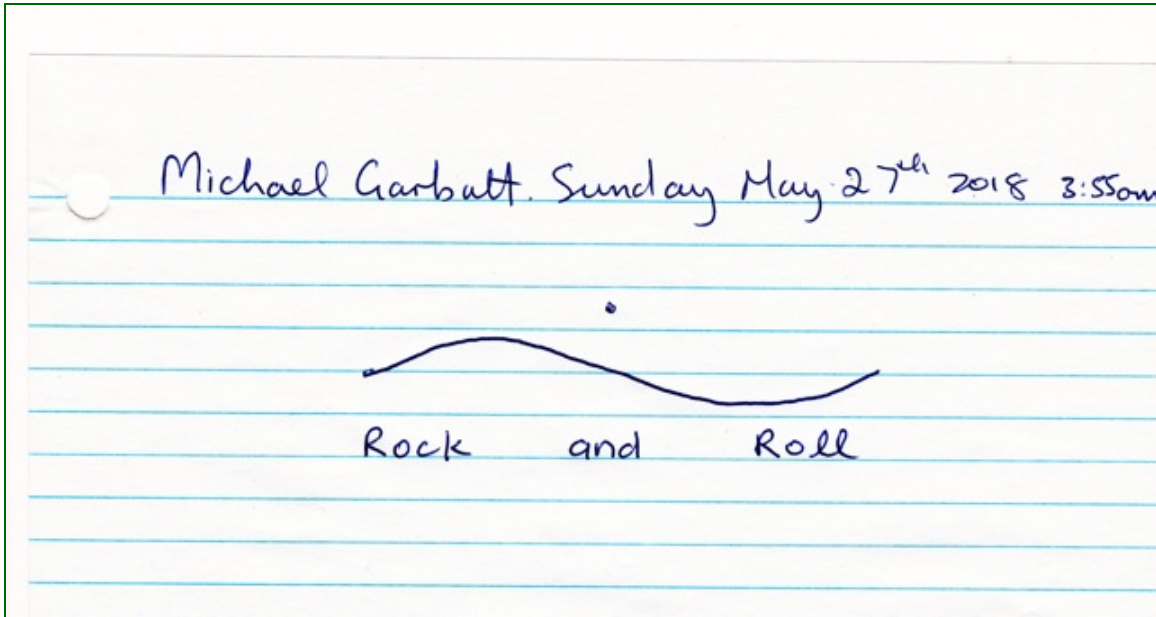 Michael Garbatt. Sunday May 27th 2018 3:55am
Rock and Roll